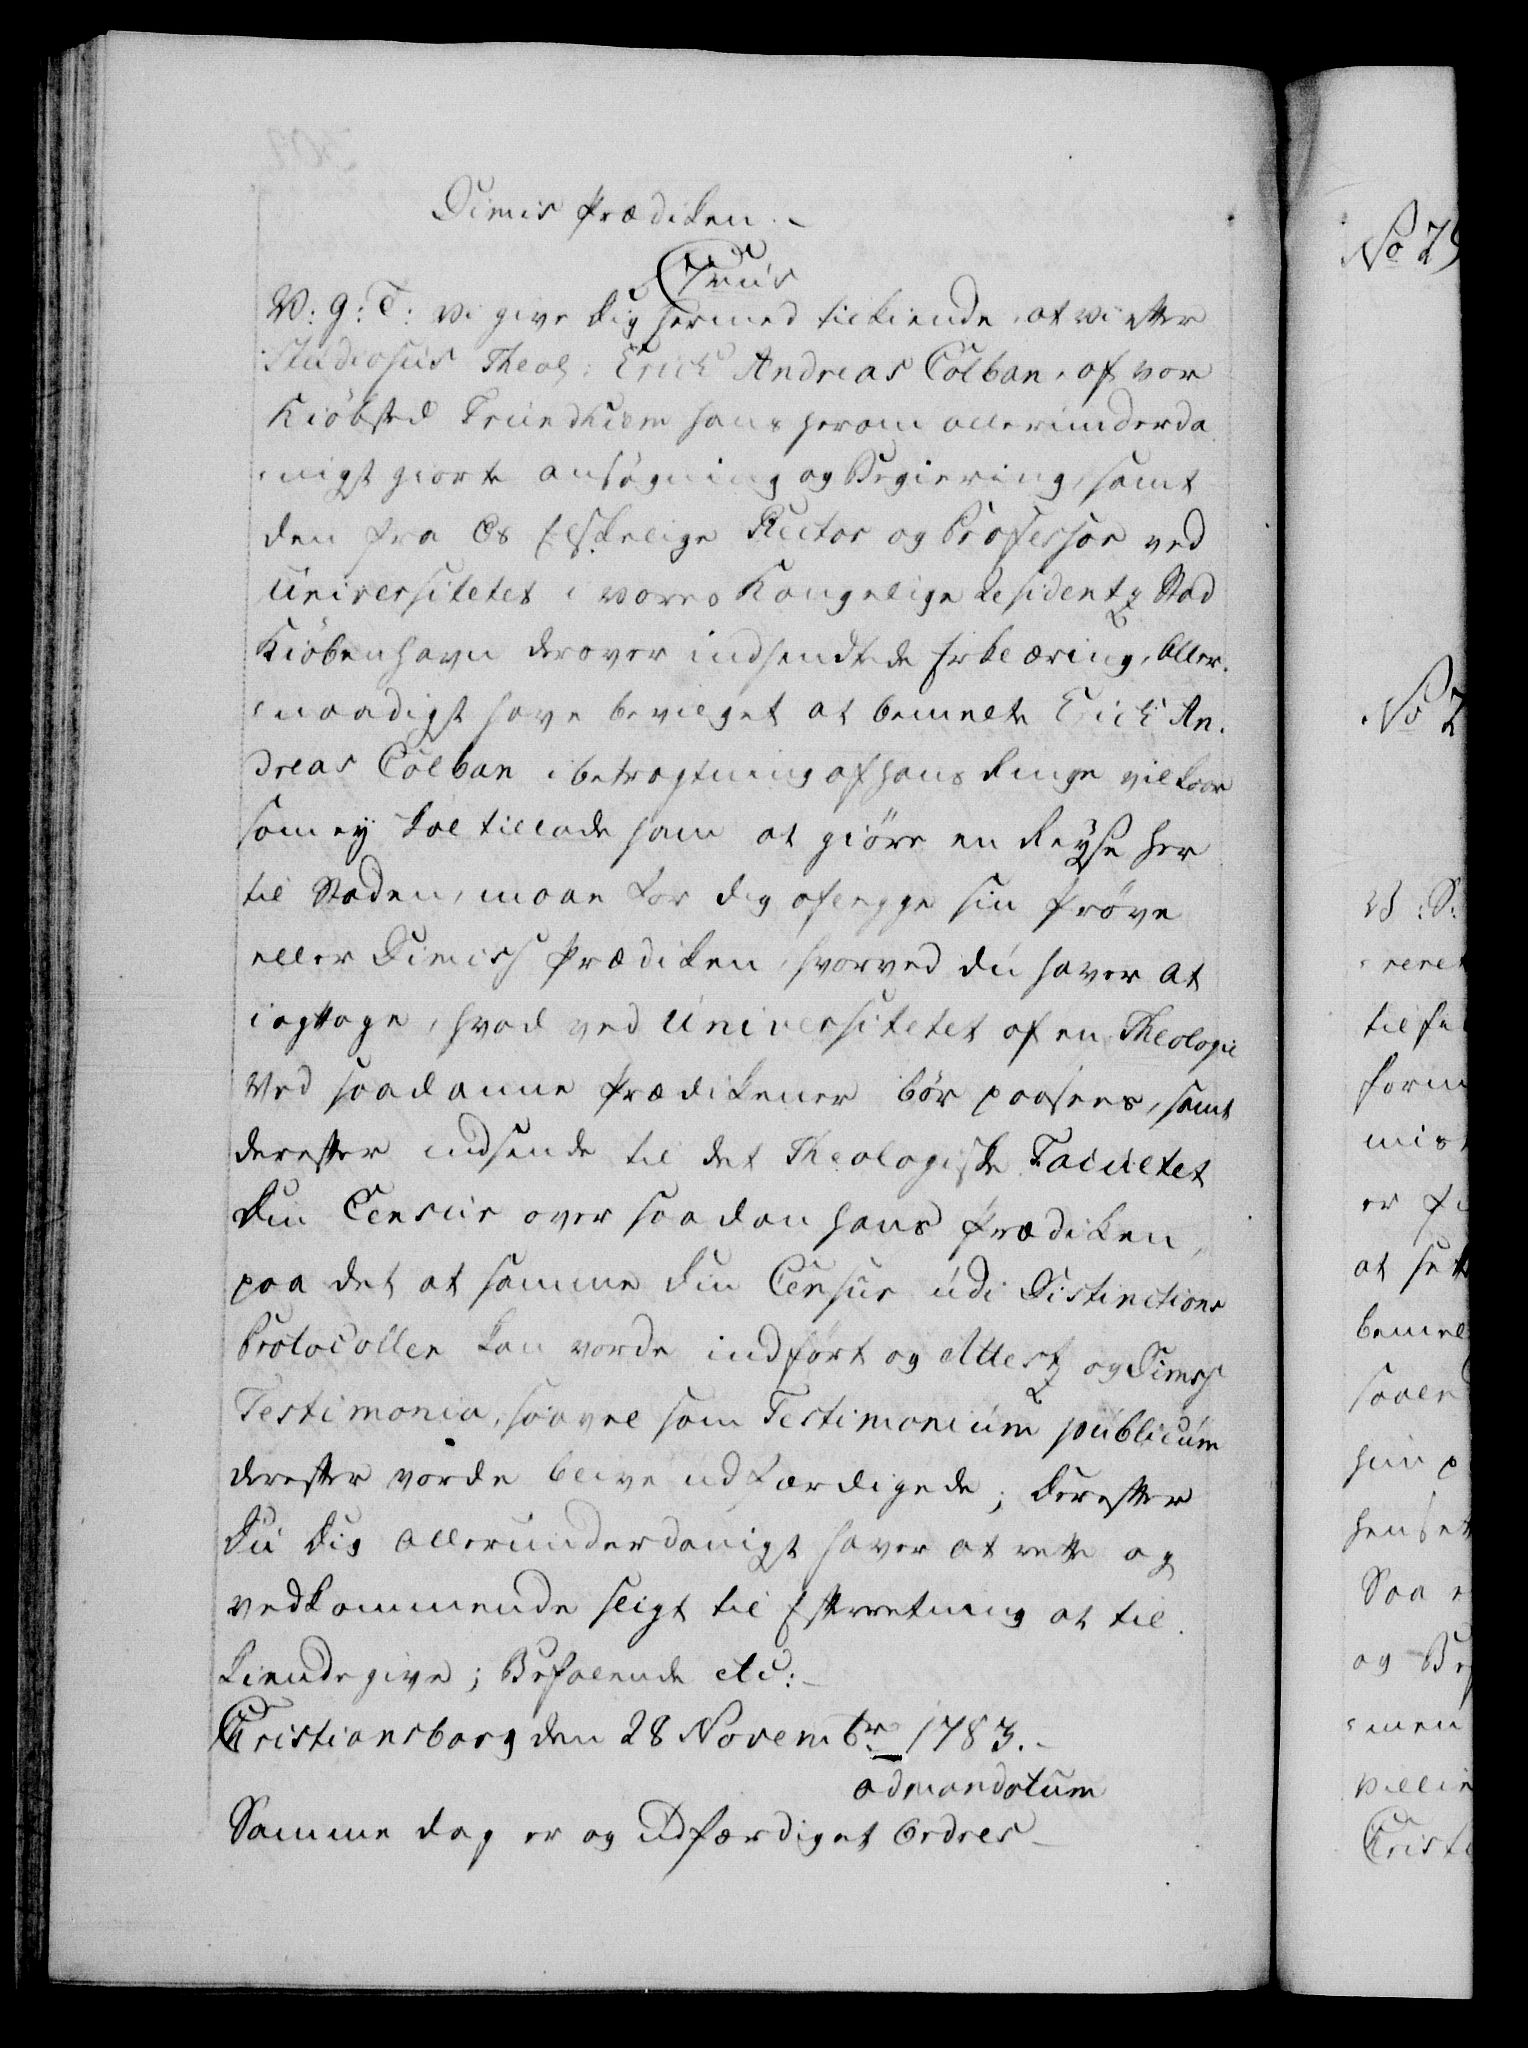 Dimis Prædiken. –
Truis
V: G: T: Vi give dig hermed tilkiende, at vi efter
Studiosus Theol: Erich Andreas Colban, af vor
Kiöbsted Trundhiem hans herom allerunderda
nigst giorte ansögning og Begiering, samt
den fra Os Elskelige Rector og Professor ved
Universitetet i vores Kongelige Residentz Stad
Kiöbenhavn derover indsendte Erklæring, Aller-
naadigst have bevilget at bemelte Erich An-
dreas Colban i betragtning af hans ringe vilkaar
som ej skal tillade ham at giöre en Reyse her
til Staden, maae for dig aflegge sin Pröve
eller Dimiss Prædiken, hvorved du haver at
iagttage, hvad ved Universitetet af en Theologie
ved saadanne Prædikener bör paasees, samt
derefter indsende til det Theologiske Facultet
din Censur over saadan hans Prædiken,
paa det at samme din Censur udi Distinctions
Protocollen kan vorde indfört og Attest og Dimiss
Testimonia, saavel som Testimonium publicum
derefter vorde blive udfærdigede; derefter
Du dig allerunderdanigst haver at rette og
vedkommende sligt til Efterretning at til
kiende give; Befalende etc: –
Cristiansborg den 28 Novembr 1783. –
ad mandatum
Samme dag er og udfærdiget Ordres –
No 7
No 7
V: S:
at
er
og
men
Cristi